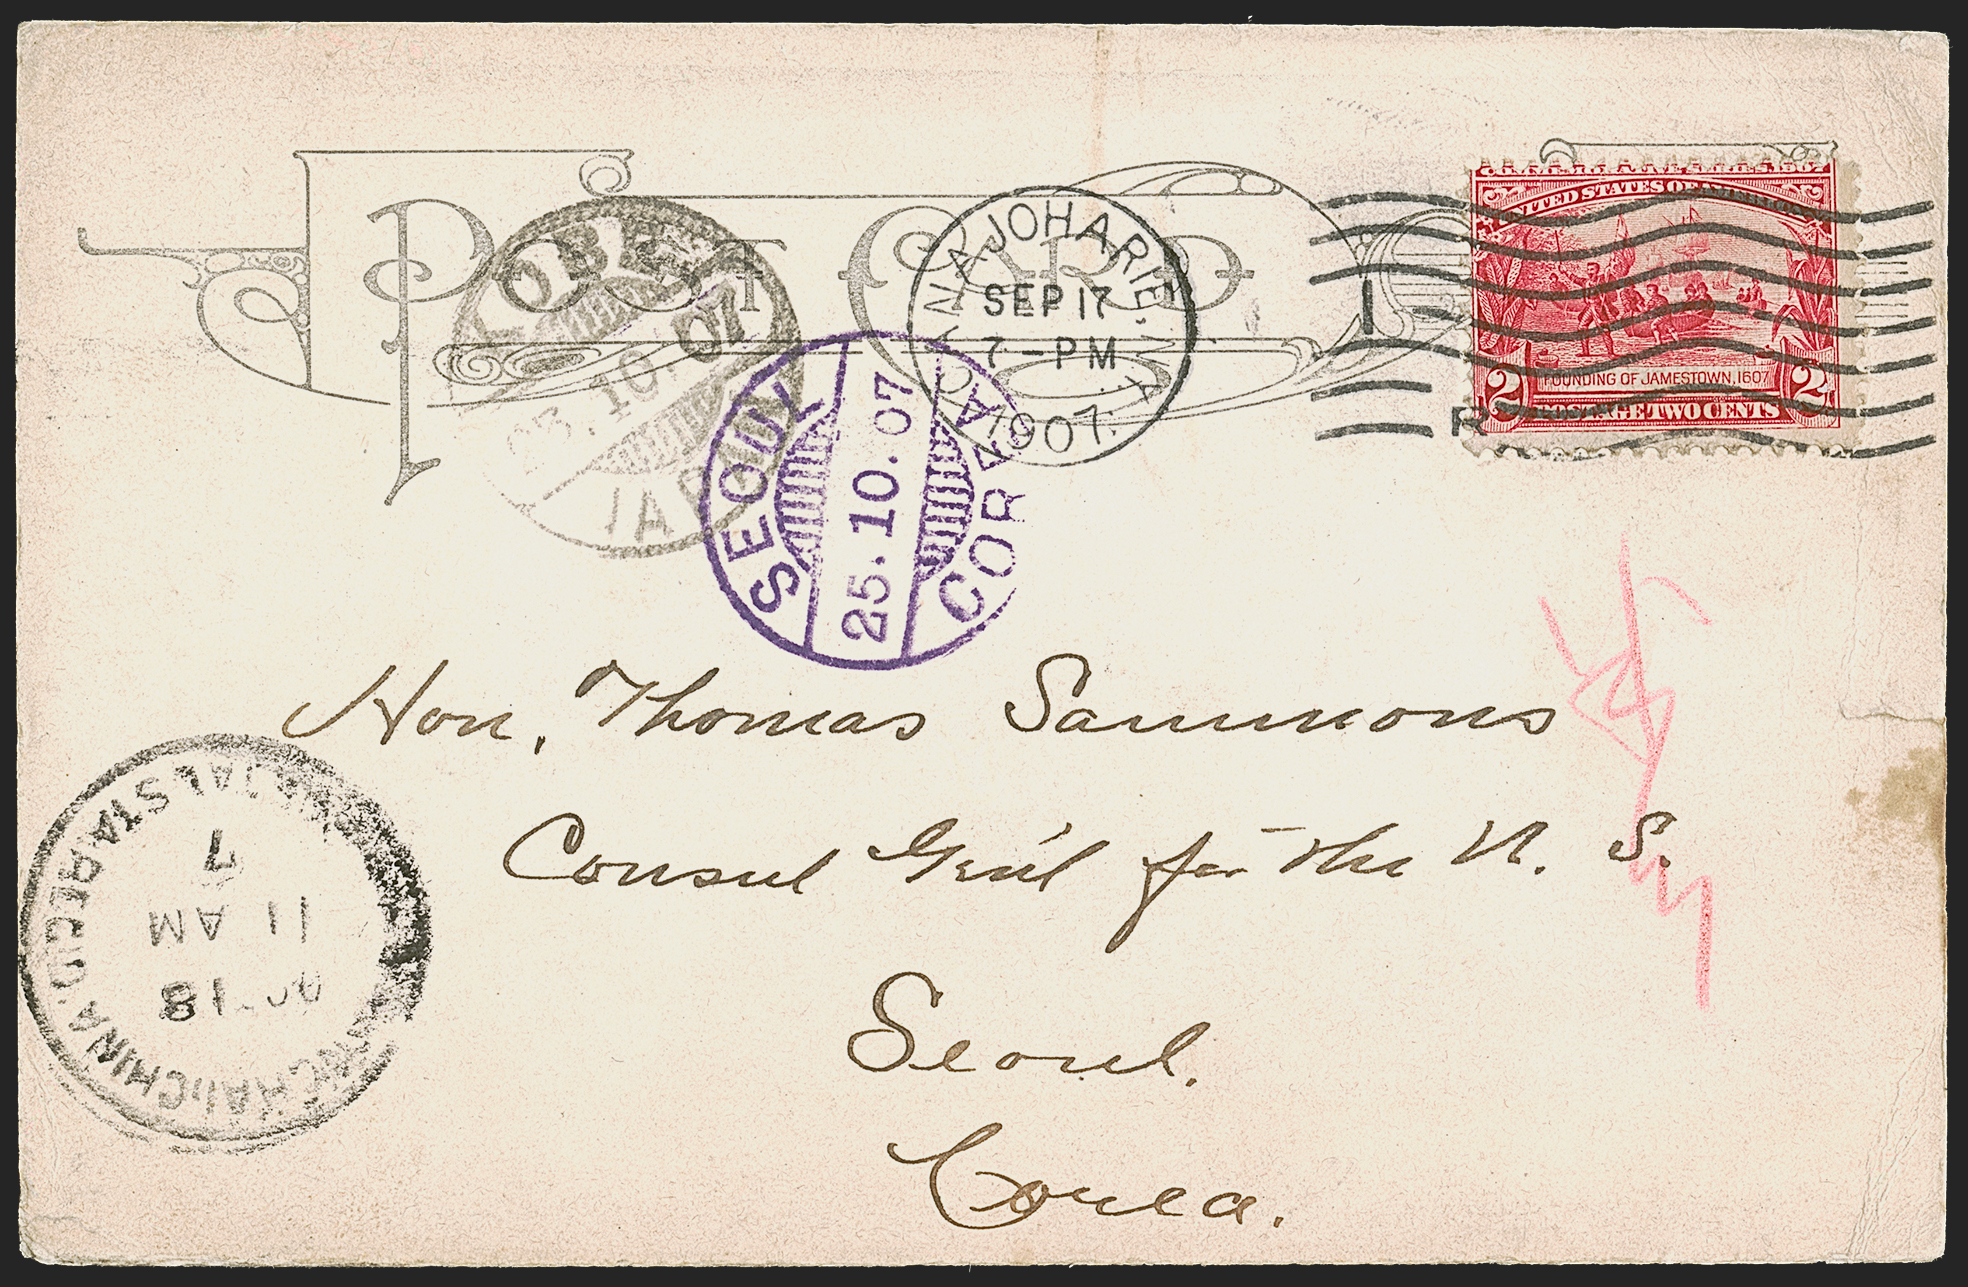 POST CARD
CANAJOHARIE, N.Y.
SEP 17
7-PM
1907.
1
R
SERIES 1907
UNITED STATES OF AMERICA
FOUNDING OF JAMESTOWN, 1607
2 2
POSTAGE TWO CENTS
KOBE
23.10.07
JAPAN
SEOUL
25.10.07
COREA
Hon. Thomas Sammons
Consul Gen'l for the U. S.
Seoul.
Corea.
SHANGHAI CHINA U.S. POSTAL
18
11 AM
7